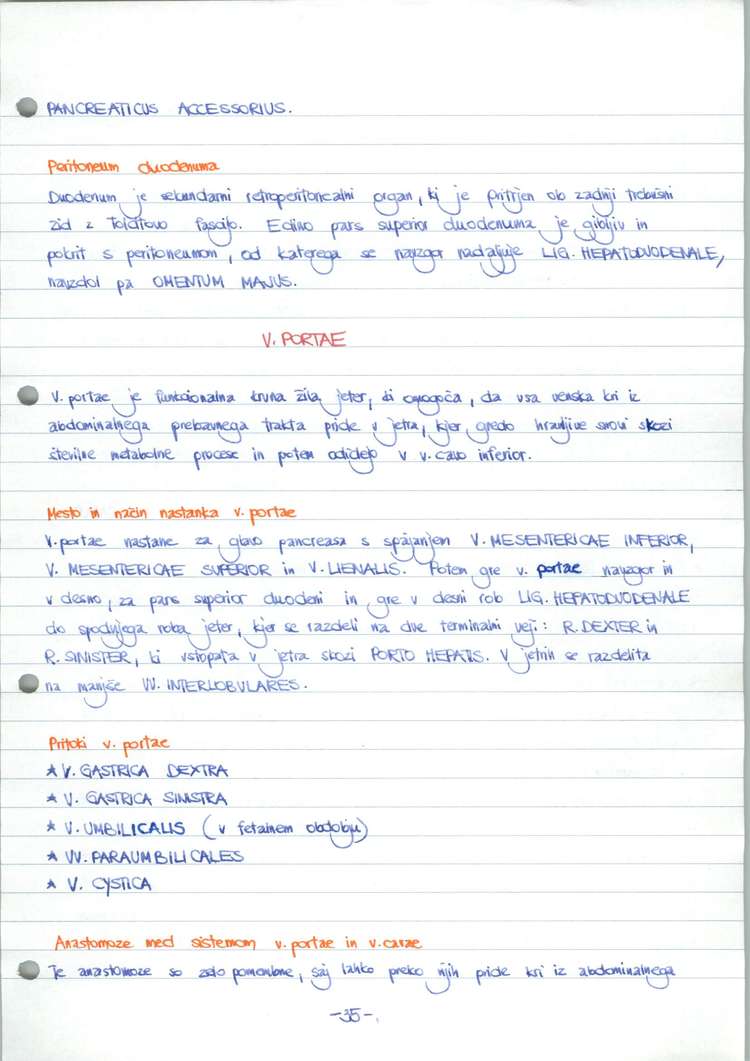 PANCREATICUS ACCESSORIUS.
Peritoneum duodenuma
Duodenum je sekundarni retroperitonealni organ, ki je pritrjen ob zadnji trebušni
zid z Tolditovo fascijo. Edino pars superior duodenuma je gibljiv in
pokrit s peritoneumom, od katerega se navzgor nadaljuje LIG. HEPATODUODENALE,
navzdol pa OMENTUM MAJUS.
V. PORTAE
V. portae je funkcionalna krvna žila jeter, ki omogoča, da vsa venska kri iz
abdominalnega prebavnega trakta pride v jetra, kjer gredo hranljive snovi skozi
številne metabolne procese in potem odidejo v v. cavo inferior.
Mesto in način nastanka v. portae
V. portae nastane za glavo pancreasa s spajanjem V. MESENTERICAE INFERIOR,
V. MESENTERICAE SUPERIOR in V. LIENALIS. Potem gre v. portae navzgor in
v desno, za pars superior duodeni in gre v desni rob LIG. HEPATODUODENALE
do spodnjega roba jeter, kjer se razdeli na dve terminalni veji: R. DEXTER in
R. SINISTER, ki vstopata v jetra skozi PORTO HEPATIS. V jetrih se razdelita
na manjše VV. INTERLOBULARES.
Pritoki v. portae
* V. GASTRICA DEXTRA
* V. GASTRICA SINISTRA
* V. UMBILICALIS (v fetalnem obdobju)
* VV. PARAUMBILICALES
* V. CYSTICA
Anastomoze med sistemom v. portae in v. cavae
Te anastomoze so zelo pomembne, saj lahko preko njih pride kri iz abdominalnega
-35-